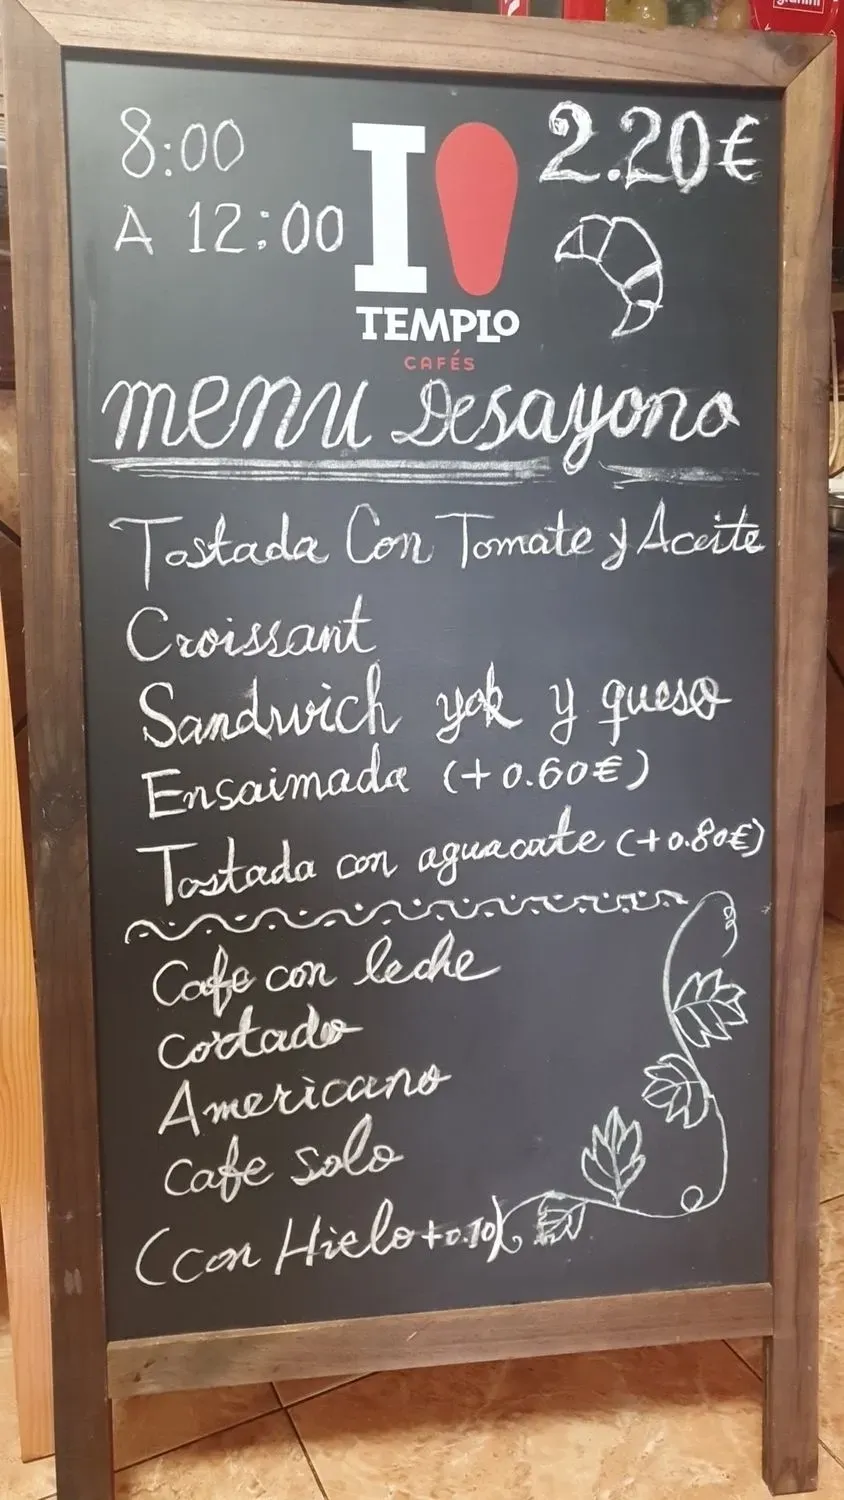 8:00
A 12:00
I
TEMPLO
CAFÉS
2.20€
menu Desayono
Tostada Con Tomate y Aceite
Croissant
Sandwich yok y queso
Ensaimada (+0.60€)
Tostada con aguacate (+0.80€)
Cafe con leche
Cortado
Americano
Cafe solo
(con Hielo +0.10)